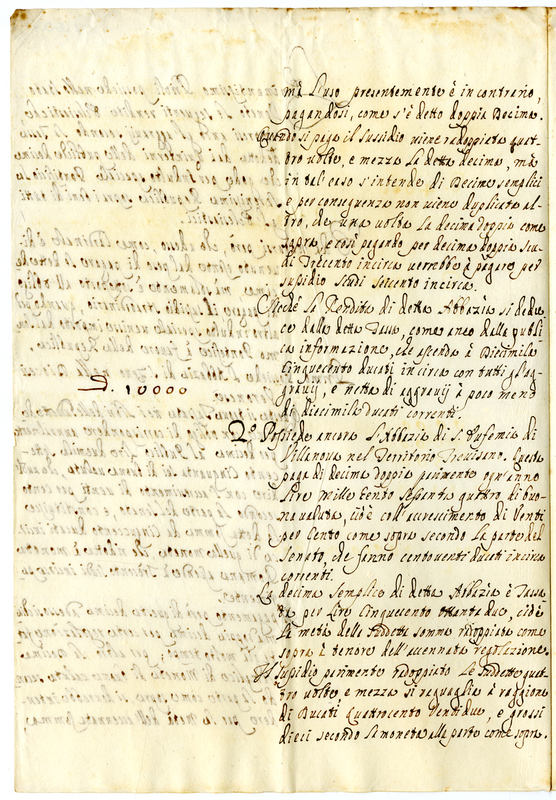 mà l'uso presentemente è in contrario,
pagandosi, come s'è detto doppia Decima.
Quando si paga il sussidio viene radoppiata quat-
tro volte, e mezza la detta decima, mà
in tal caso s'intende di Decime semplici
e per conseguenza non viene dupliata al-
tro, che una volta la decima doppia come
sopra, e così pagando per decima doppia scu-
di Trecento incirca verrebbe à pagare per
sussidio scudi seicento incirca.
la Rendita di detta Abbazia si dedu-
ce dalla detta Tassa, come anco dalla publi-
ca informazione, che ascenda à Diecimila
Cinquecento ducati incirca con tutti gl'ag-
gravij, e netta di aggravij à poco meno
di diecimila Ducati correnti.
D. 10000
2.º Possiede ancora l'Abbazia di S. Eufemia di
Villanova nel Territorio Trevisano. Questa
paga di decima doppia parimente ogn'anno
Lire mille cento sessanta quattro di buo-
na valuta, cioè coll'accrescimento di Venti
per Cento come sopra secondo la parte del
Senato, che fanno centoventi ducati incirca
correnti.
La decima semplice di detta Abbazia è Tassa-
ta per Lire Cinquecento ottanta due, cioè
la metà della suddetta somma radoppiata come
sopra à tenore dell'accennata regolazione.
Il sussidio parimente radoppiato le suddette quat-
tro volte, e mezza si raguaglia à raggione
di Ducati Quattrocento Ventidue, e grossi
dieci secondo la moneta alla parte come sopra.